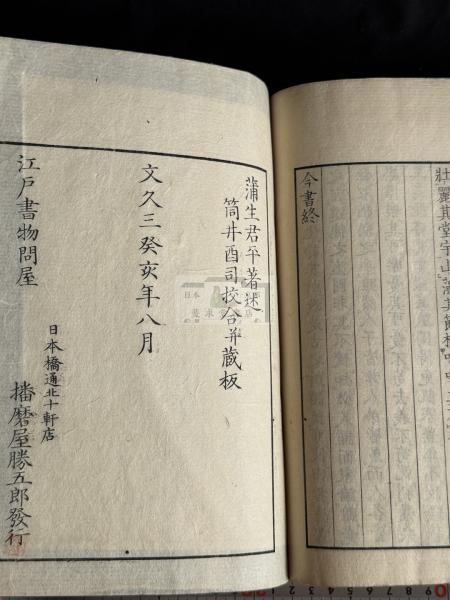 壮麗其堂宇
今書終
蒲生君平著述
筒井酉司挍合并蔵板
文久三癸亥年八月
江戸書物問屋
日本橋通北十軒店
播磨屋勝五郎發行
日本